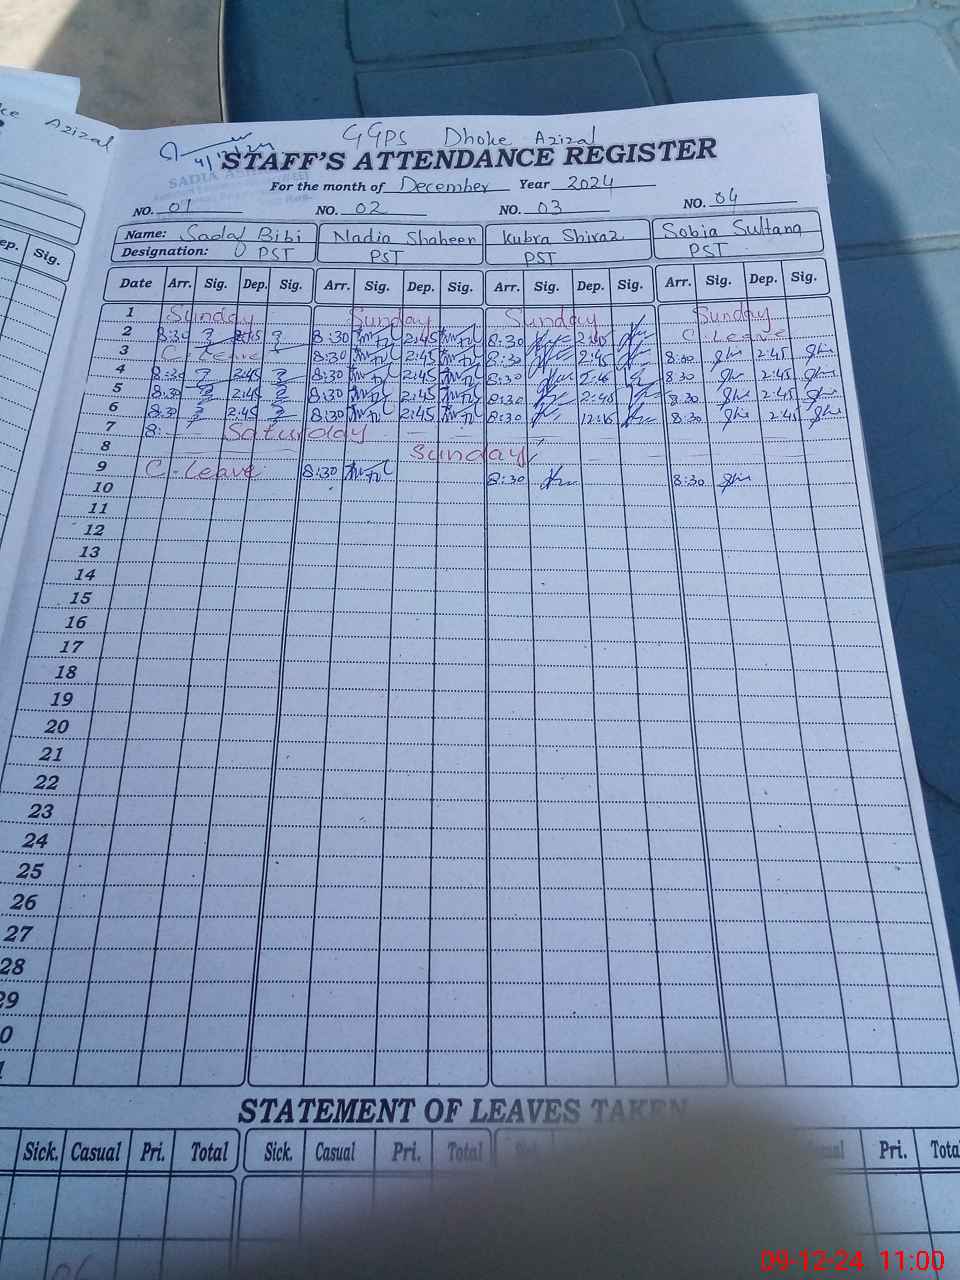 Azizal
GGPS Dhoke Azizal
4/12/24
STAFF'S ATTENDANCE REGISTER
SADIA
For the month of December Year 2024
NO. 01 NO. 02 NO. 03 NO. 04
Name: Sadaf Bibi Nadia Shaheen Kubra Shiraz Sobia Sultana
Designation: PST PST PST PST
ep. Sig.
Date Arr. Sig. Dep. Sig. Arr. Sig. Dep. Sig. Arr. Sig. Dep. Sig. Arr. Sig. Dep. Sig.
1 Sunday Sunday Sunday Sunday
2 8:30 2:45 8:30 2:45 8:30 2:45 C. Leave
3 C. Leave 8:30 2:45 8:30 2:45 8:30 2:45
4 8:30 2:45 8:30 2:45 8:30 2:45 8:30 2:45
5 8:30 2:45 8:30 2:45 8:30 2:45 8:30 2:45
6 8:30 2:45 8:30 2:45 8:30 8:30 2:45
7 8: Saturday
8 Sunday
9 C-Leave 8:30 8:30 8:30
10
11
12
13
14
15
16
17
18
19
20
21
22
23
24
25
26
27
28
29
0
STATEMENT OF LEAVES TAKEN
Sick. Casual Pri. Total Sick. Casual Pri. Total Pri. Total
09-12-24 11:00